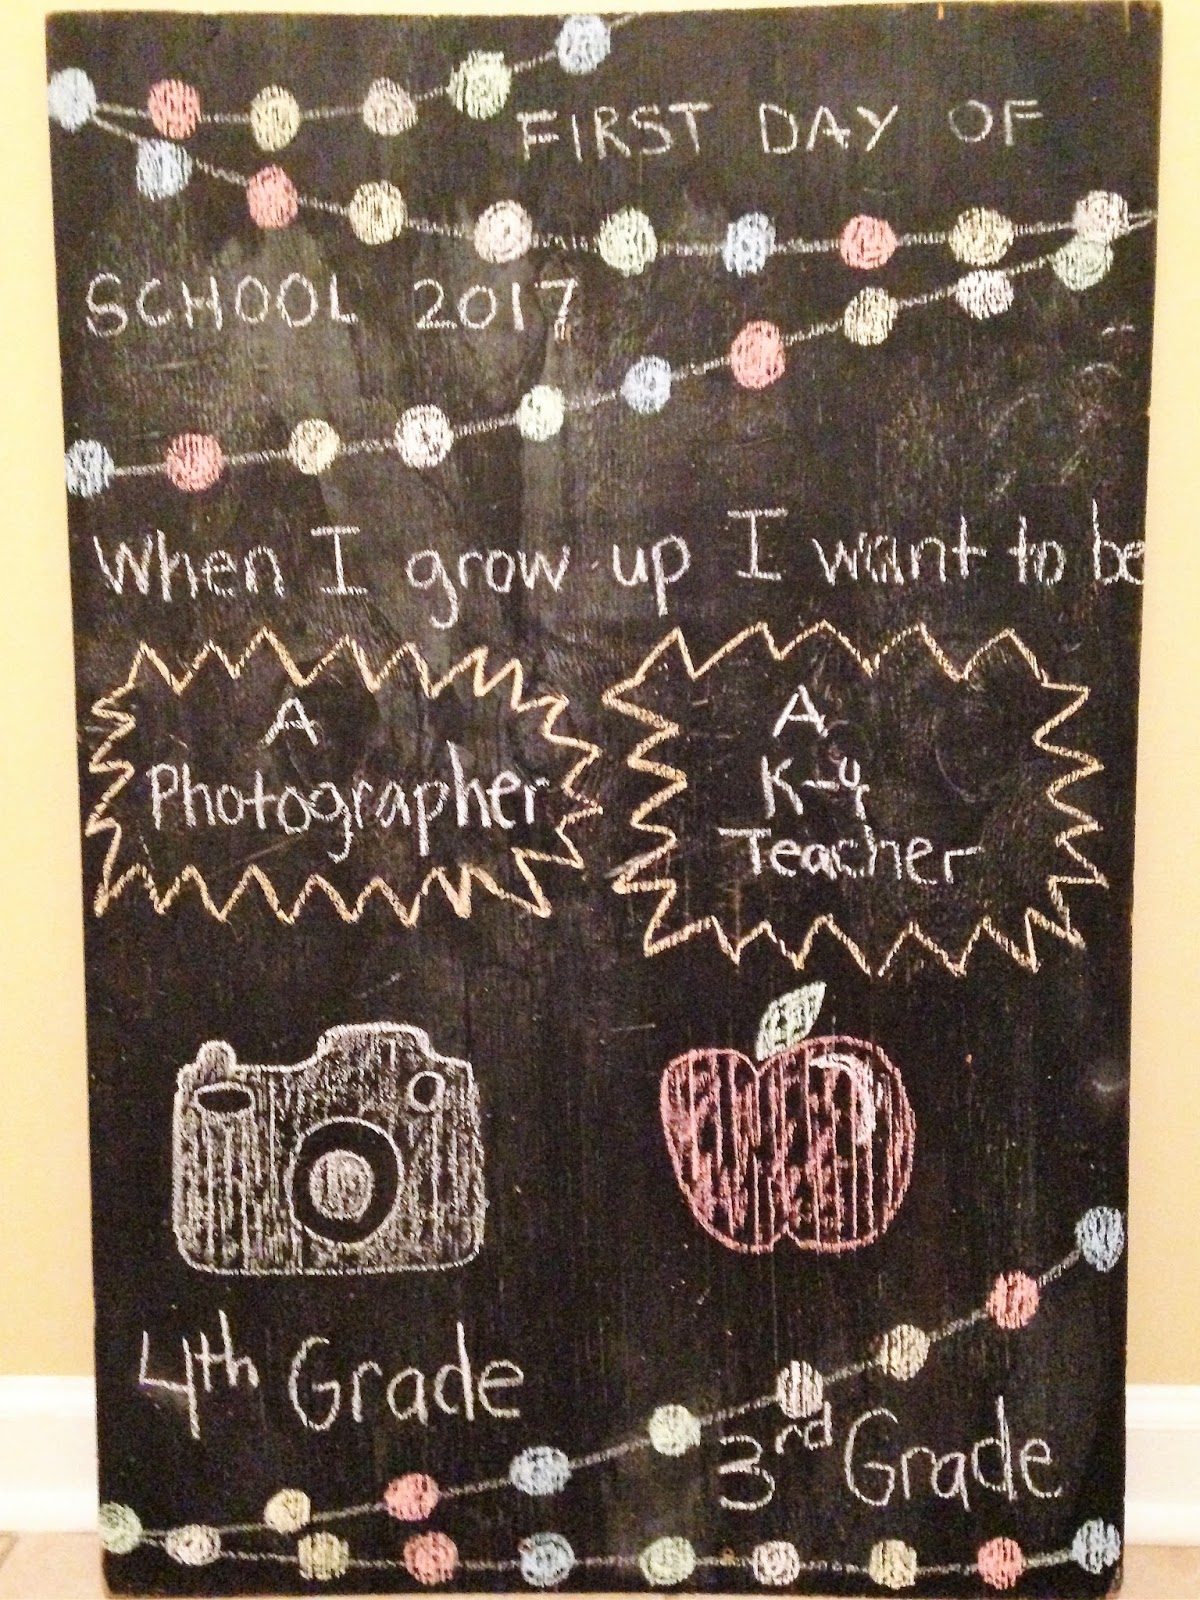 FIRST DAY OF
SCHOOL 2017
When I grow up I want to be
A
Photographer
A
K-4
Teacher
4th Grade
3rd Grade